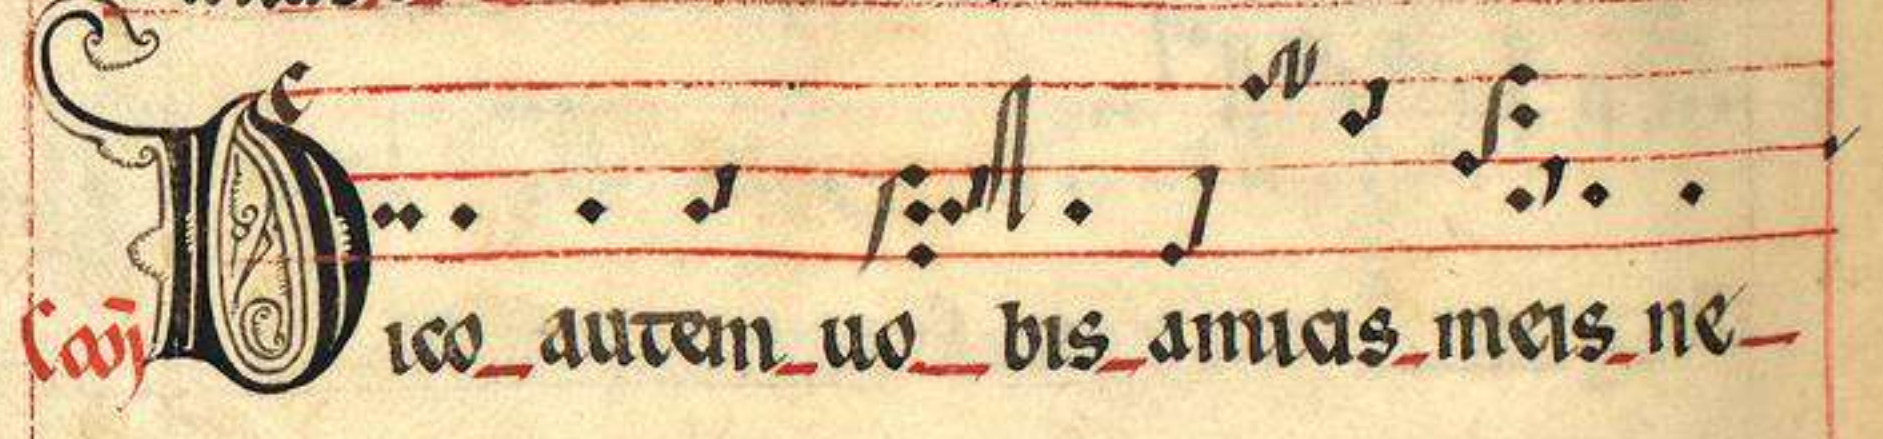 Dico autem uo bis amicis meis ne